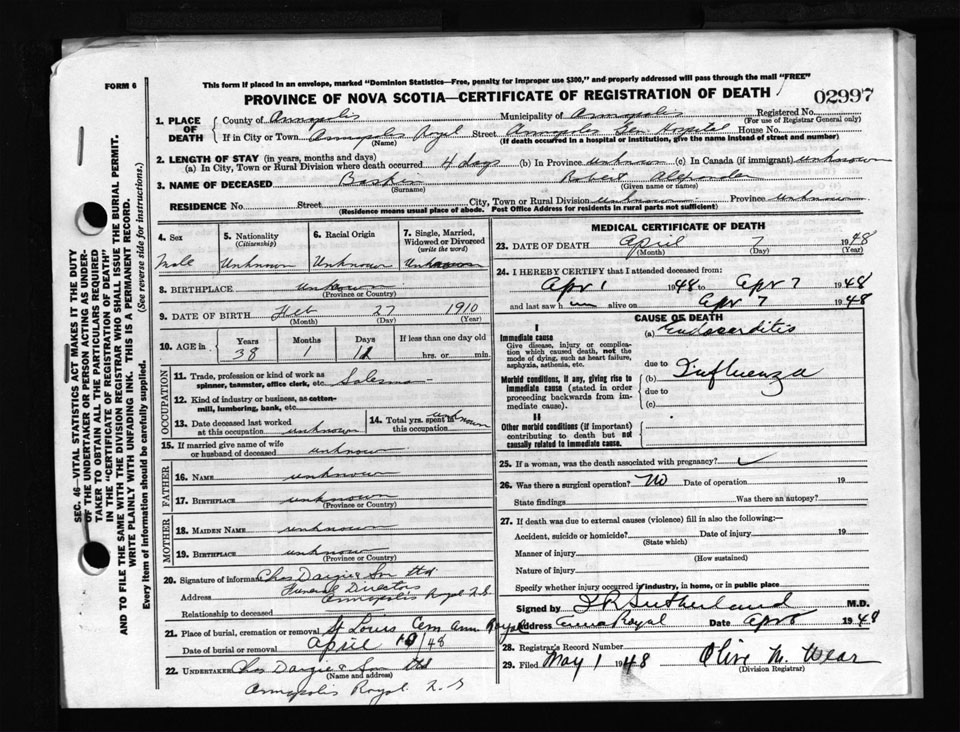 This form if placed in an envelope, marked "Dominion Statistics—Free, penalty for improper use $300," and properly addressed will pass through the mail "FREE"
FORM 6
PROVINCE OF NOVA SCOTIA—CERTIFICATE OF REGISTRATION OF DEATH
02997
SEC. 46—VITAL STATISTICS ACT MAKES IT THE DUTY
OF THE UNDERTAKER OR PERSON ACTING AS UNDER-
TAKER TO OBTAIN ALL THE PARTICULARS REQUIRED
IN THE "CERTIFICATE OF REGISTRATION OF DEATH"
AND TO FILE THE SAME WITH THE DIVISION REGISTRAR WHO SHALL ISSUE THE BURIAL PERMIT.
WRITE PLAINLY WITH UNFADING INK. THIS IS A PERMANENT RECORD.
Every item of information should be carefully supplied. (See reverse side for instructions.)
1. PLACE OF DEATH
County of Annapolis Municipality of Annapolis Registered No.
(For use of Registrar General only)
If in City or Town Annapolis Royal Street Annapolis Gen Hospital House No.
(Name) (If death occurred in a hospital or institution, give the name instead of street and number)
2. LENGTH OF STAY (in years, months and days)
(a) In City, Town or Rural Division where death occurred 4 days (b) In Province unknown (c) In Canada (if immigrant) unknown
3. NAME OF DECEASED Baskin Robert Alexander
(Surname) (Given name or names)
RESIDENCE No. Street City, Town or Rural Division unknown Province unknown
(Residence means usual place of abode. Post Office Address for residents in rural parts not sufficient)
4. Sex
Male
5. Nationality
(Citizenship)
Unknown
6. Racial Origin
Unknown
7. Single, Married,
Widowed or Divorced
(write the word)
Unknown
8. BIRTHPLACE unknown
(Province or Country)
9. DATE OF BIRTH Feb 27 1910
(Month) (Day) (Year)
10. AGE in
Years Months Days If less than one day old
38 1 11 hrs. or min.
OCCUPATION
11. Trade, profession or kind of work as
spinner, teamster, office clerk, etc. Salesman
12. Kind of industry or business, as cotton-
mill, lumbering, bank, etc.
13. Date deceased last worked
at this occupation unknown
14. Total yrs. spent in
this occupation unknown
15. If married give name of wife
or husband of deceased unknown
FATHER
16. NAME unknown
17. BIRTHPLACE unknown
(Province or Country)
MOTHER
18. MAIDEN NAME unknown
19. BIRTHPLACE unknown
(Province or Country)
20. Signature of informant Chas Dargie & Son Ltd
Funeral Directors
Address Annapolis Royal N.S.
Relationship to deceased
21. Place of burial, cremation or removal St Louis Cem Ann Royal
Date of burial or removal April /48
22. UNDERTAKER Chas Dargie & Son Ltd
(Name and address)
Annapolis Royal N.S
MEDICAL CERTIFICATE OF DEATH
23. DATE OF DEATH April 7 1948
(Month) (Day) (Year)
24. I HEREBY CERTIFY that I attended deceased from:
Apr 1 1948 to Apr 7 1948
and last saw h im alive on Apr 7 1948
CAUSE OF DEATH
I
Immediate cause
Give disease, injury or complica-
tion which caused death, not the
mode of dying, such as heart failure,
asphyxia, asthenia, etc.
(a) Endocarditis
due to
Morbid conditions, if any, giving rise to
immediate cause (stated in order
proceeding backwards from im-
mediate cause).
(b) Influenza
due to
(c)
II
Other morbid conditions (if important)
contributing to death but not
causally related to immediate cause.
25. If a woman, was the death associated with pregnancy? ✓
26. Was there a surgical operation? No Date of operation 19
State findings Was there an autopsy?
27. If death was due to external causes (violence) fill in also the following:—
Accident, suicide or homicide? Date of injury 19
(State which)
Manner of injury
(How sustained)
Nature of injury
Specify whether injury occurred in industry, in home, or in public place
Signed by Sutherland M.D.
Address Anna Royal Date Apr 8 1948
28. Registrar's Record Number
29. Filed May 1 1948 Olive M. Wear
(Division Registrar)